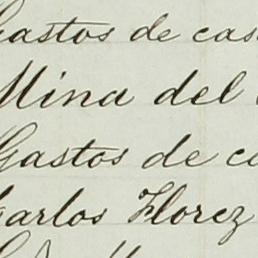 Gastos de cas
Mina del
Gastos de c
Carlos Florez